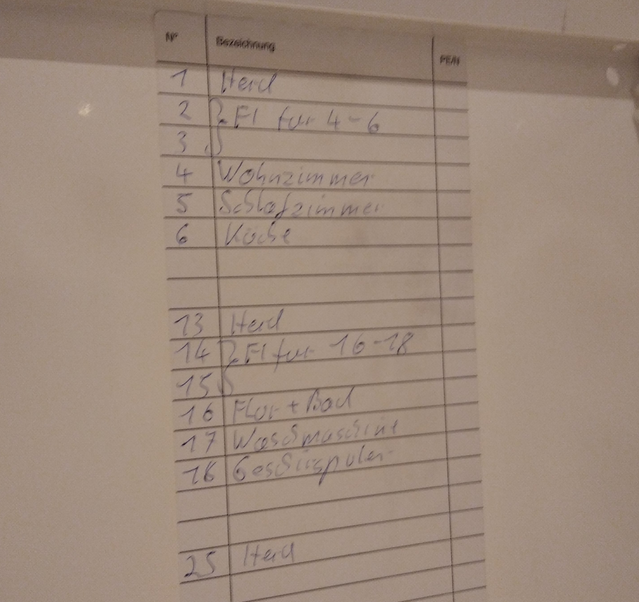 N° Bezeichnung
1 Herd
2 FI für 4-6
3
4 Wohnzimmer
5 Schlafzimmer
6 Küche
13 Herd
14 FI für 16-18
15
16 Flur + Bad
17 Waschmaschine
18 Geschirrspüler
25 Herd